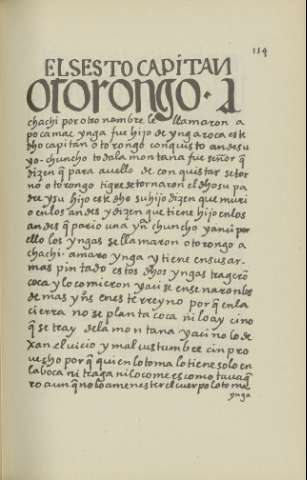 114
EL SESTO CAPITAN
otorongo · A
chachi por otro nombre le llamaron a
pocamac ynga fue hijo de ynga roca este
dho capitan otorongo conquisto andesu
yo · chuncho toda la montaña fue señor q̃
dizen q̃ para auello de conquistar se tor
no otorongo tigre se tornaron el dho su pa
dre y su hijo este dho su hijo dizen que muri
o en los andes y dizen que tiene hijo en los
andes q̃ pario una yn̄ chuncho yanci por
ello los yngas se llamaron otorongo a
chachi · amaro ynga y tiene en sus ar
mas pintado estos dhos yngas trageron
coca y lo comieron y aci se enseñaron los
demas yns̄ en este rreyno por q̃ en la
cierra no se planta coca ni lo ay cino
q̃ se tray de la montaña y aci no lo de
xan el uicio y mal custumbre cin pro
uecho por q̃ quien lo toma lo tiene solo en
la boca ni traga ni lo come es como tauaq̃
ro aunq̃ no lo a menester el cuerpo lo toma
ynga